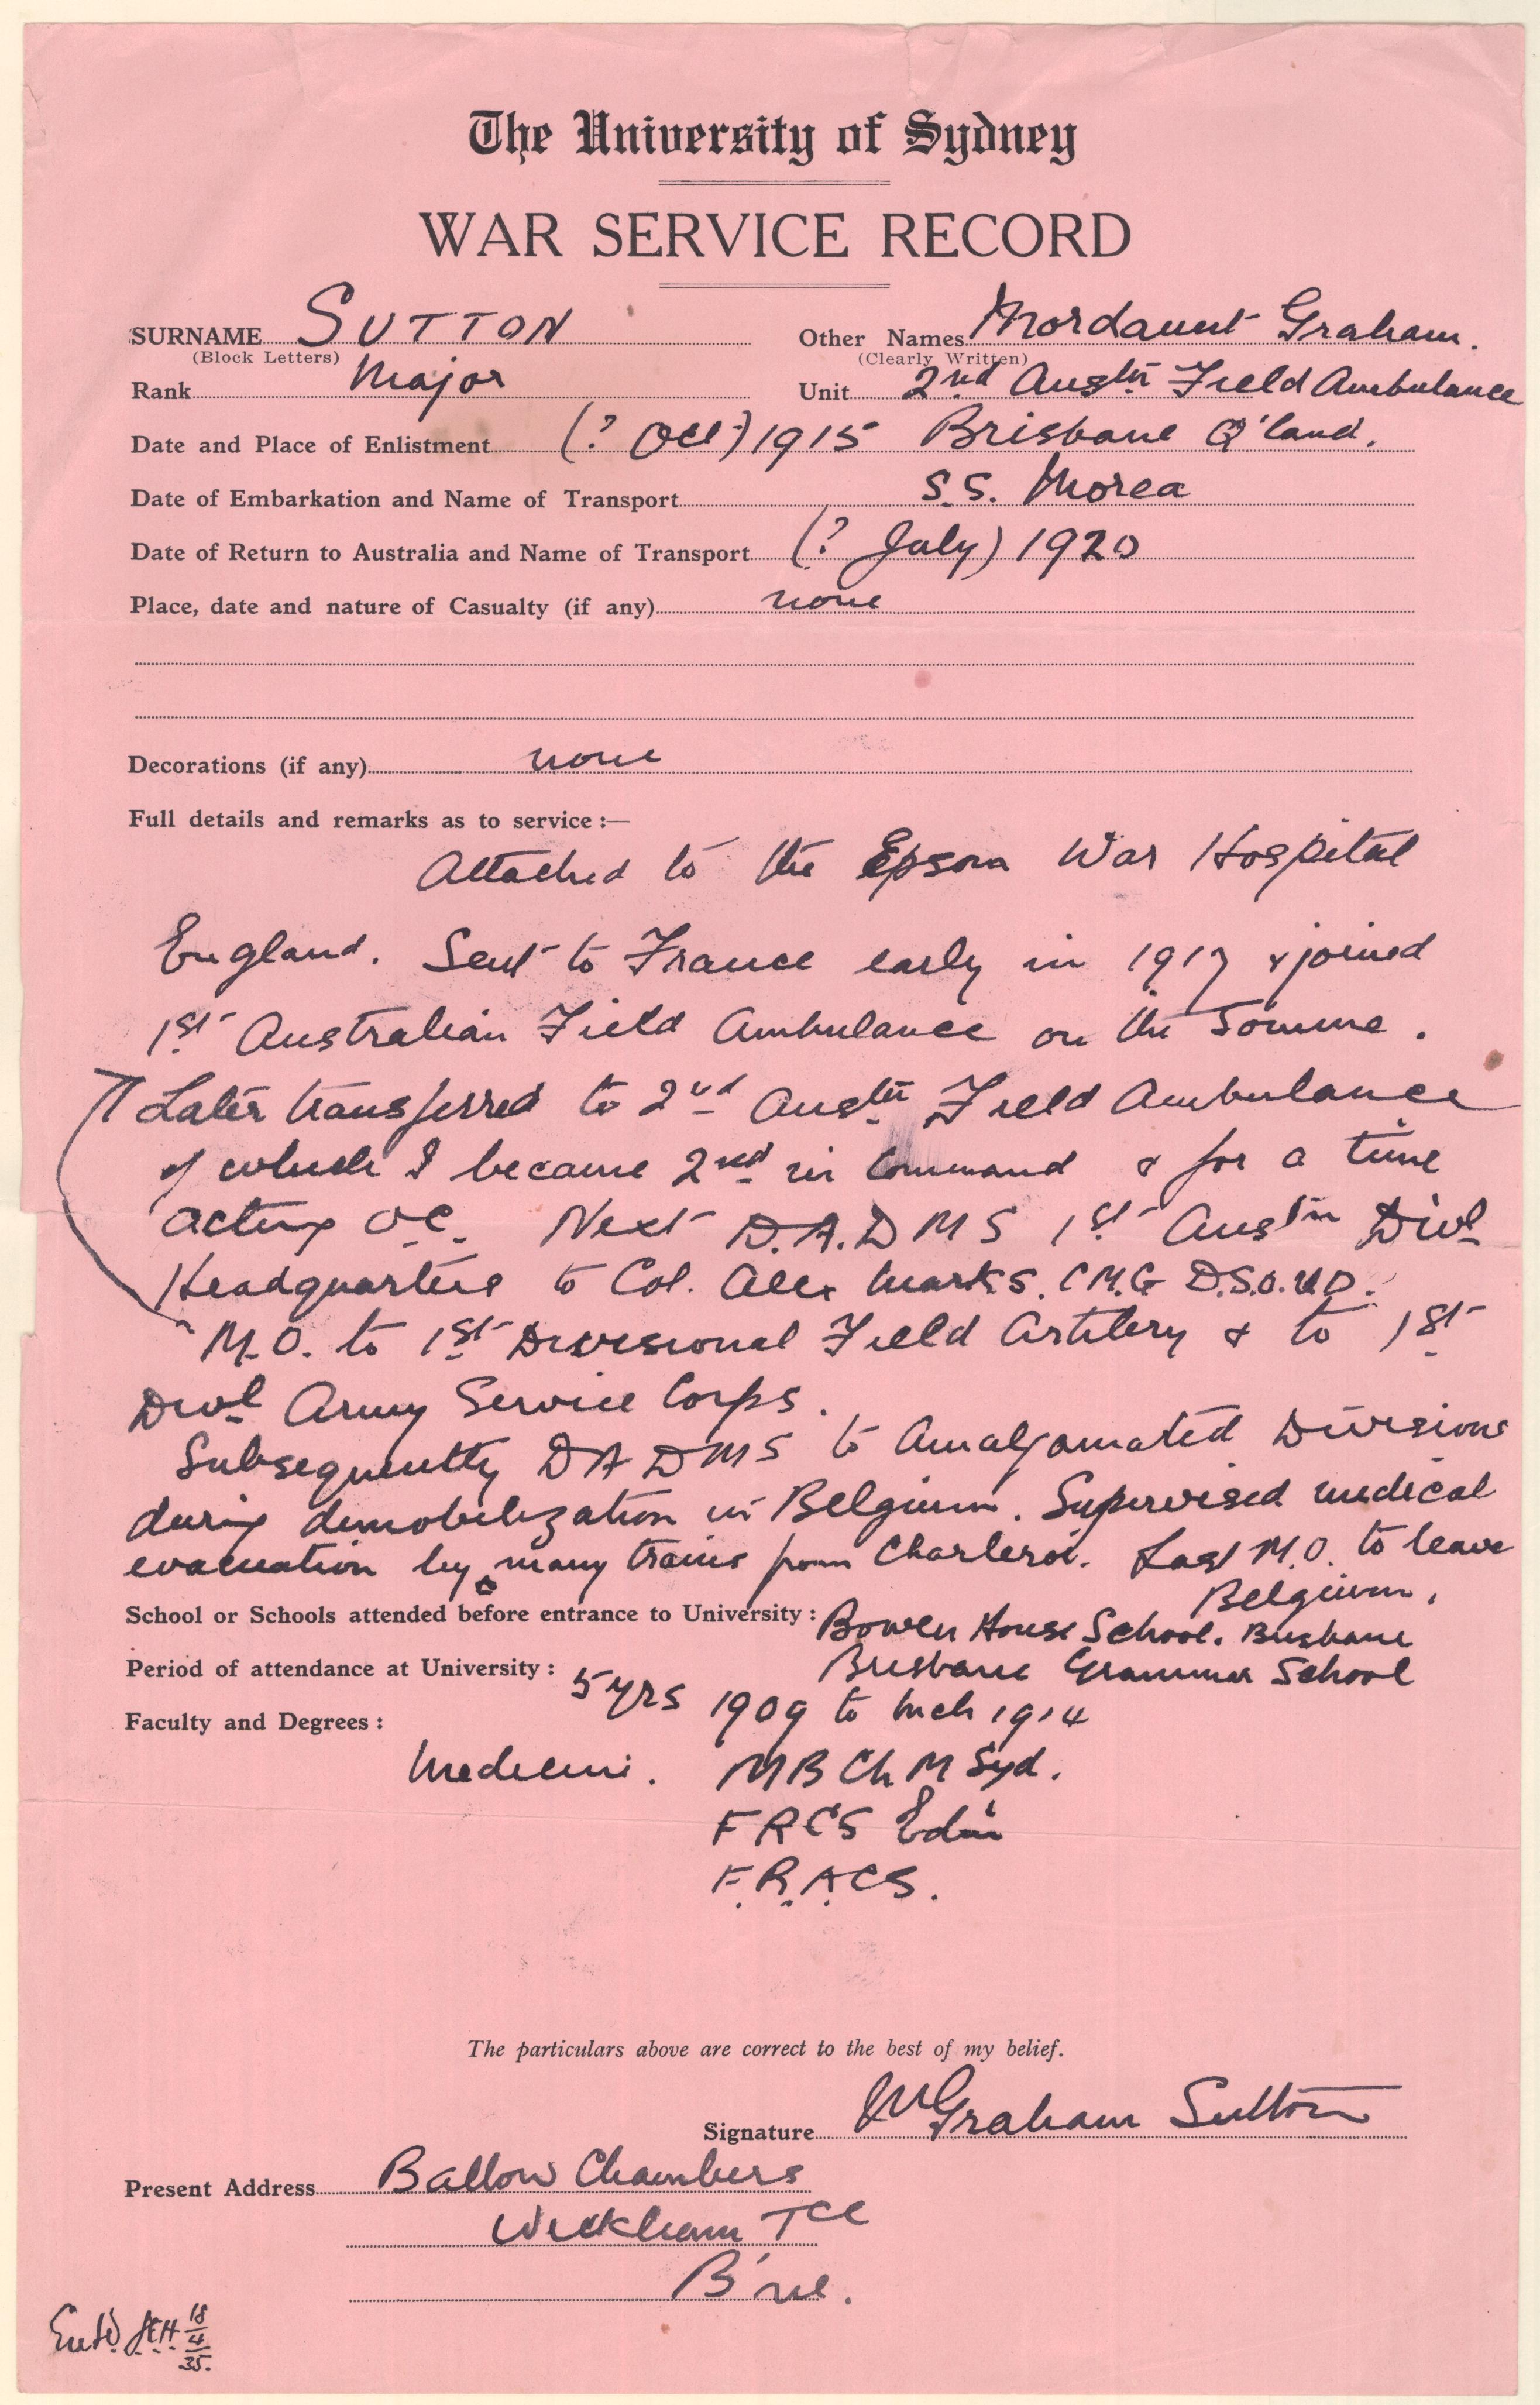 The University of Sydney
WAR SERVICE RECORD
SURNAME SUTTON
(Block Letters)
Other Names Mordaunt Graham.
(Clearly Written)
Rank Major
Unit 2nd Austn Field Ambulance
Date and Place of Enlistment (? Oct) 1915 Brisbane Q'land.
Date of Embarkation and Name of Transport S.S. Morea
Date of Return to Australia and Name of Transport (? July) 1920
Place, date and nature of Casualty (if any) none
Decorations (if any) none
Full details and remarks as to service :—
Attached to the Epsom War Hospital
England. Sent to France early in 1917 & joined
1st Australian Field Ambulance on the Somme.
Later transferred to 2nd Austn Field Ambulance
of which I became 2nd in Command & for a time
acting O.C. Next D.A.D M S 1st Austn Divl
Headquarters to Col. Alex Marks. C M.G D.S.O. V.D.
M.O. to 1st Divisional Field Artilery & to 1st
Divl Army Service Corps.
Subsequently D A D M S to Amalgamated Divisions
during demobilization in Belgium. Supervised medical
evacuation by many trains from Charleroi. Last M.O. to leave
Belgium.
School or Schools attended before entrance to University : Bowen House School. Brisbane
Brisbane Grammar School
Period of attendance at University : 5 yrs 1909 to Mch 1914
Faculty and Degrees :
Medicine. M B Ch M Syd.
F R C S Edin
F.R.A.C S.
The particulars above are correct to the best of my belief.
Signature M Graham Sutton
Present Address Ballow Chambers
Wickham Tce
B'ne.
Entd J.E.H. 18/4/35.